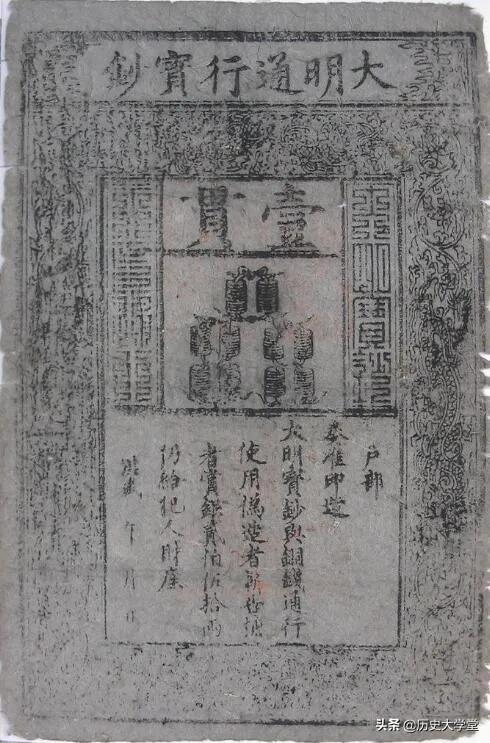 大明通行寶鈔
壹貫
大明寶鈔
天下通行
户部
奏准印造
大明寶鈔與銅錢通行
使用偽造者斬告捕
者賞銀貳伯伍拾兩
仍給犯人財産
洪武 年 月 日
头条 @历史大学堂